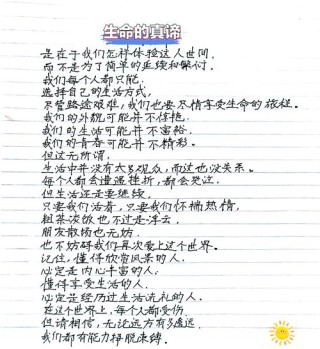 生命的真谛
是在于我们怎样体验这人世间.
而不是为了简单的延续和繁衍.
我们每个人都只能.
选择自己的生活方式.
尽管路途艰难,我们也要尽情享受生命的旅程.
我们的外貌可能并不惊艳.
我们的生活可能并不富裕.
我们的青春可能并不精彩.
但这无所谓.
生活中并没有太多观众,而这也没关系.
每个人都会遭遇挫折,都会哭泣.
但生活还是要继续.
只要我们活着,只要我们怀揣热情.
粗茶淡饭也不过是浮云.
朋友散场也无妨.
也不妨碍我们再次爱上这个世界.
记住,懂得欣赏风景的人.
必定是内心丰富的人;
懂得享受生活的人.
必定是经历过生活洗礼的人.
在这个世界上,每个人都受伤.
但请相信,无论远方有多遥远.
我们都有能力挣脱束缚.